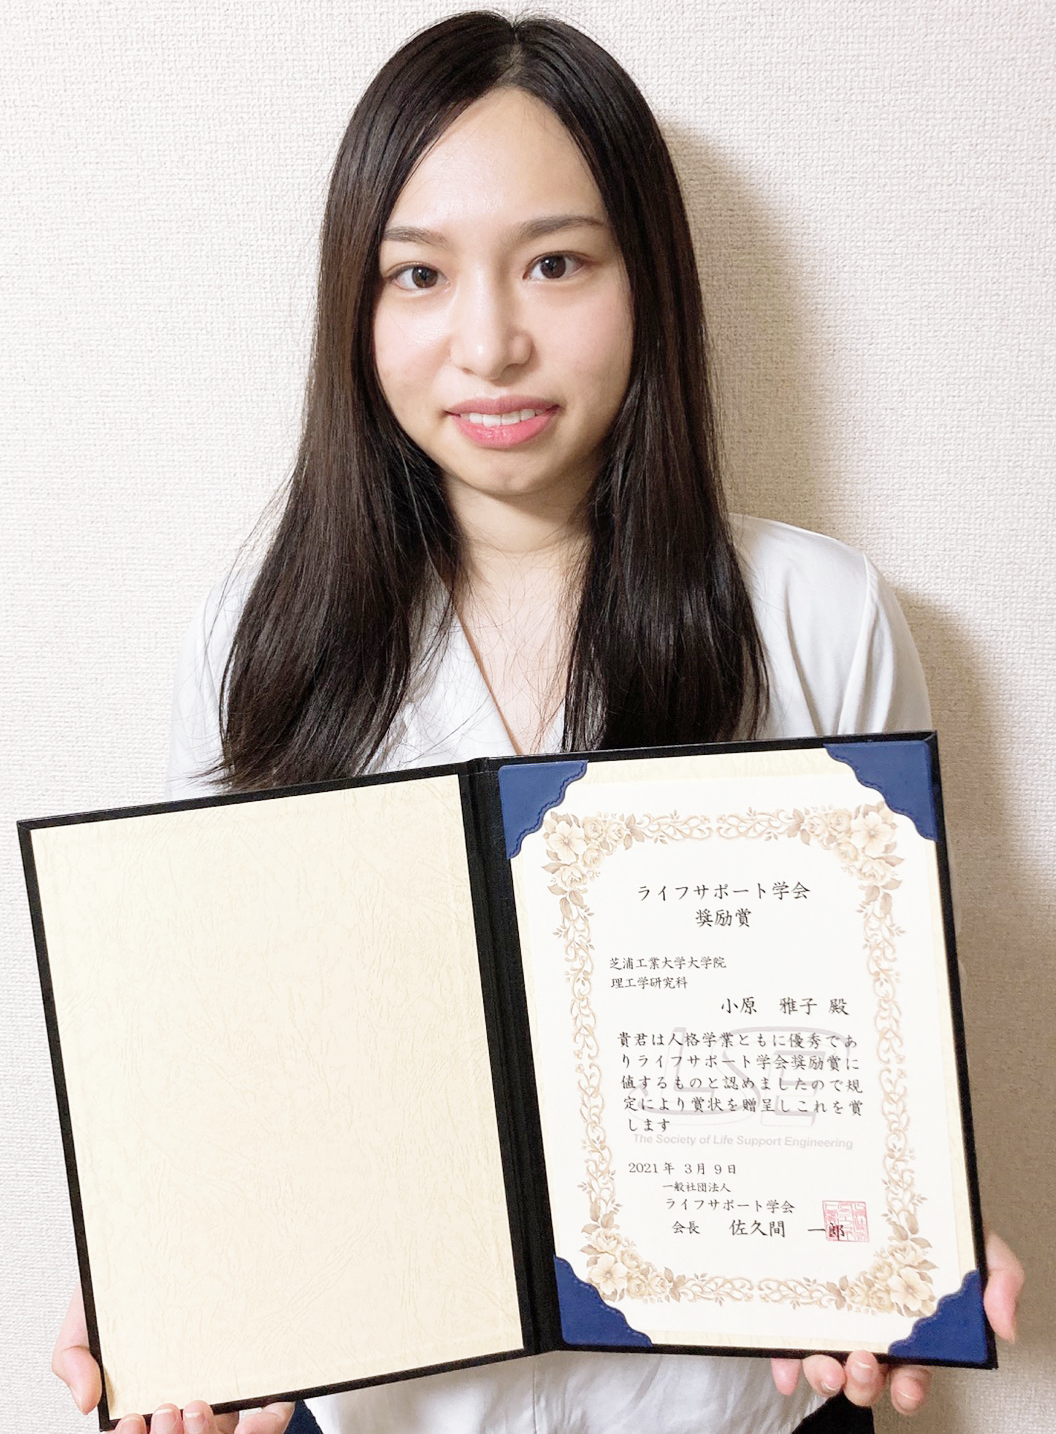 ライフサポート学会
奨励賞
芝浦工業大学大学院
理工学研究科
小原 雅子 殿
貴君は人格学業ともに優秀であ
りライフサポート学会奨励賞に
値するものと認めましたので規
定により賞状を贈呈しこれを賞
します
The Society of Life Support Engineering
2021年 3月 9日
一般社団法人
ライフサポート学会
会長 佐久間 一郎